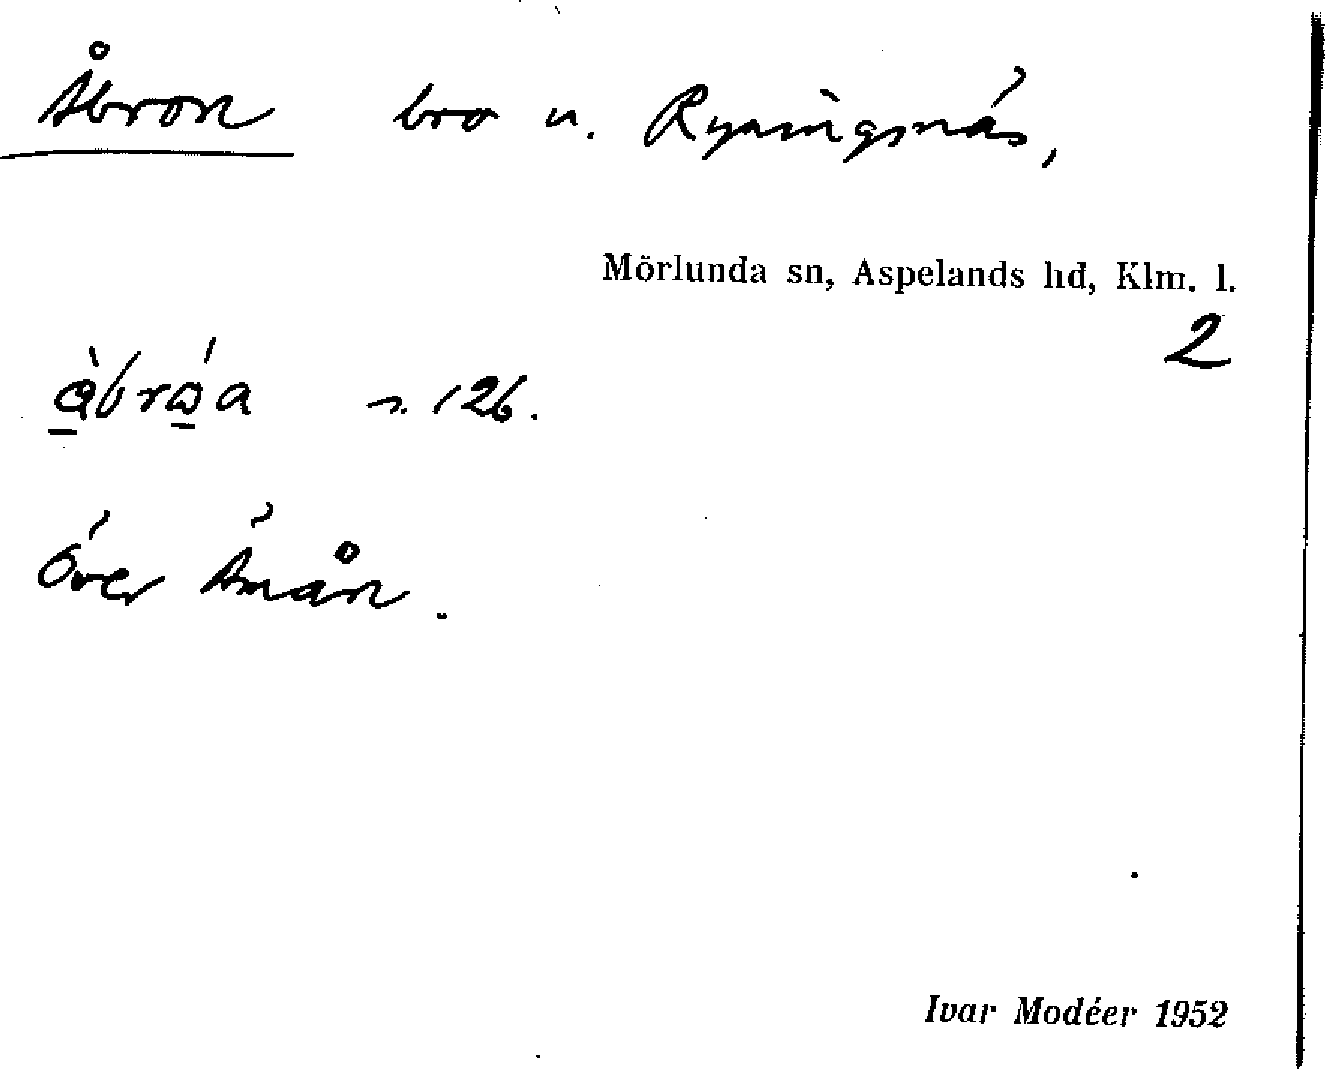 Åbron bro n. Ryningsnäs,
Mörlunda sn, Aspelands hd, Klm. l.
2
s. 126.
över Ämån.
Ivar Modéer 1952